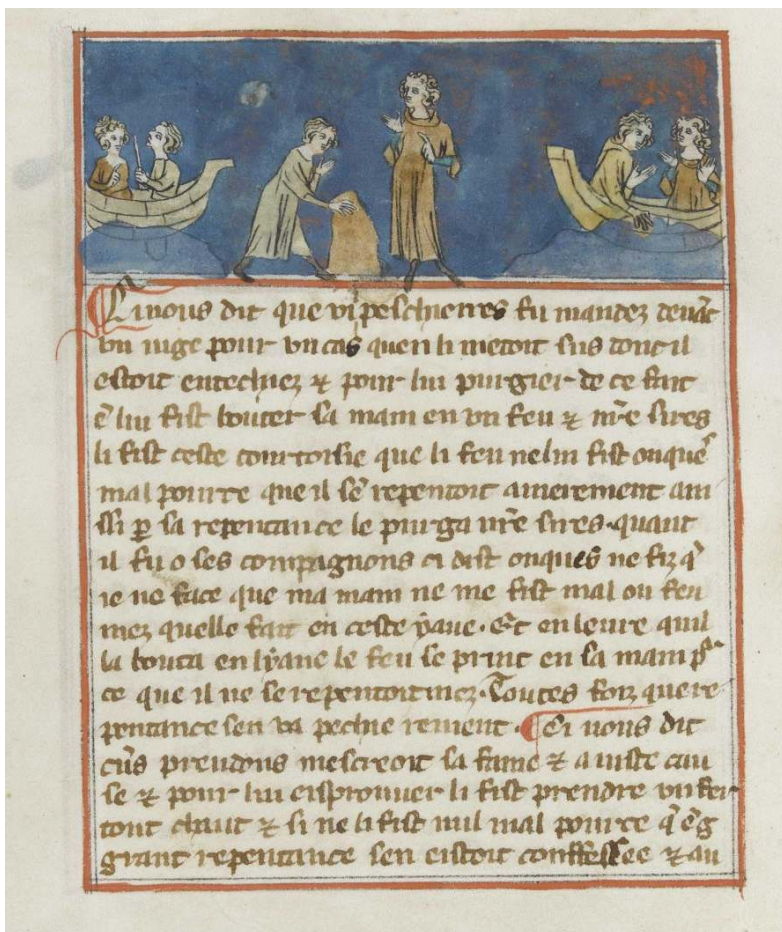 Ci nous dit que vn peschierres fu mandez deuãt
vn iuge pour vn cas quen li metoit sus dont il
estoit entechiez ⁊ pour lui purgier de ce fait
ẽ lui fist bouter sa main en vn feu ⁊ nr̃e sires
li fist ceste courtoisie que li feu nelui fist onqueˢ
mal pource que il se repentoit amerement ain
ssi ꝑ sa repentance le purga nr̃e sires. quant
il fu o ses compagnons ci dist onques ne fiz q̃
ie ne face que ma main ne me fist mal ou feu
mez quelle fait en ceste yaue. Et en leure quil
la bouta en lyaue le feu se print en sa main pʳ
ce que il ne se repentoit mez. Toutes foiz que re
pentance sen va pechie reuient. Ci nous dit
cũs preudons mescreoit sa fame ⁊ a iuste cau
se ⁊ pour lui esprouuer li fist prendre vn fer
tout chaut ⁊ si ne li fist nul mal pource q̃
grant repentance sen estoit conffessee ⁊ au